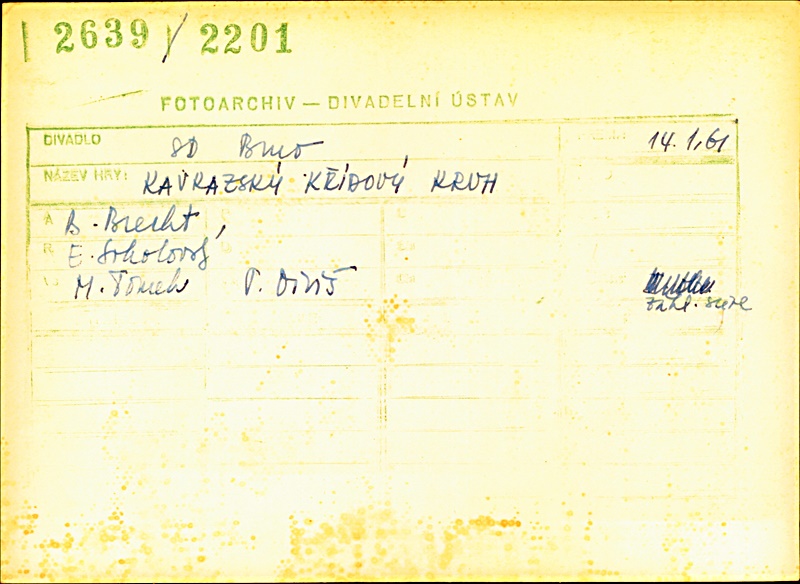 2639 / 2201
FOTOARCHIV — DIVADELNÍ ÚSTAV
DIVADLO SD Brno 14.1.61
NÁZEV HRY: KAVKAZSKÝ KŘÍDOVÝ KRUH
A B. Brecht,
R E. Sokolovský
M. Tomek P. Diviš